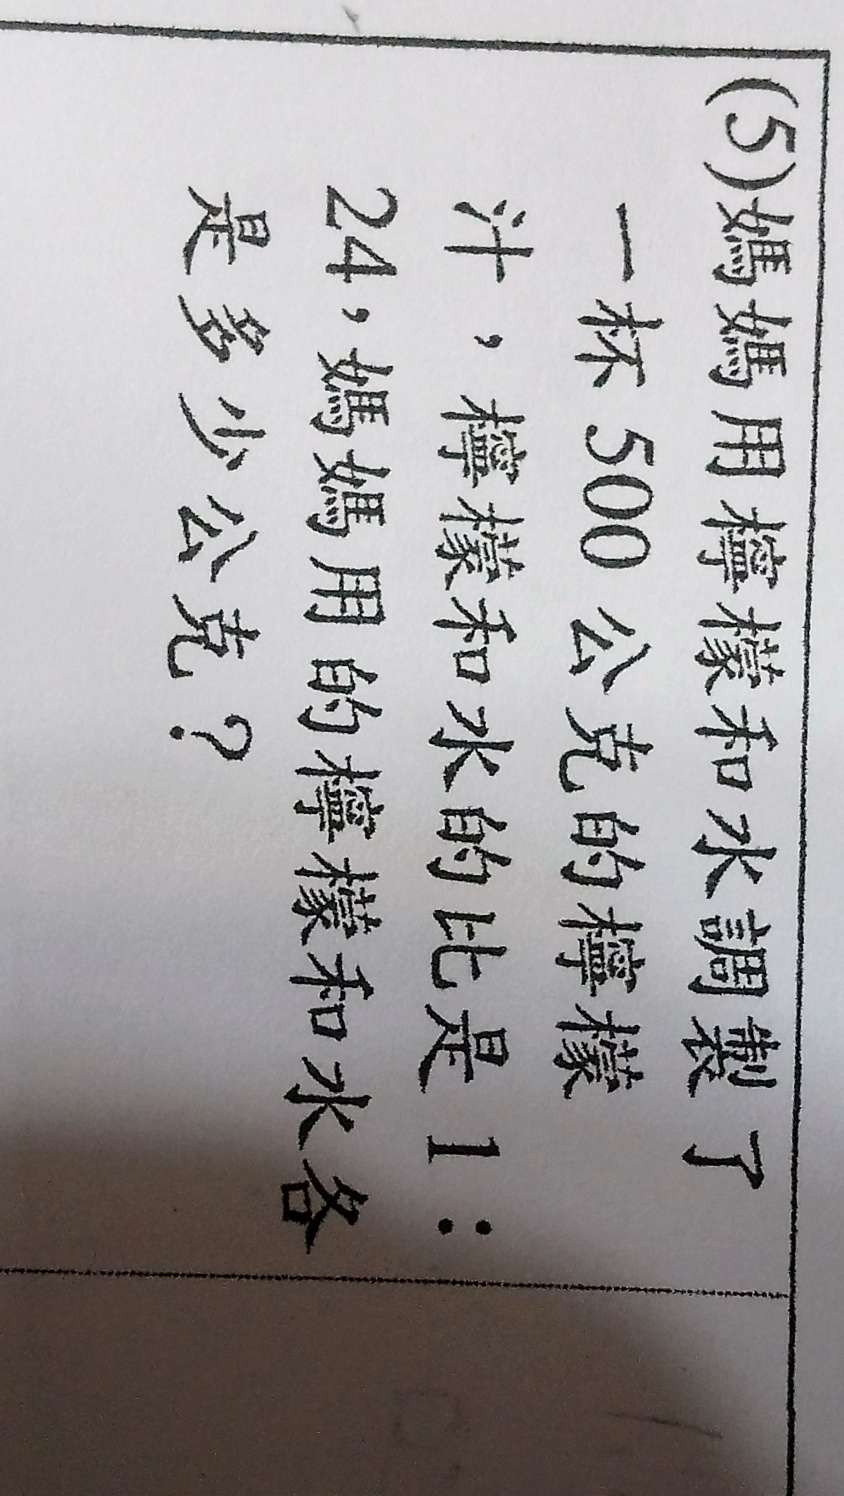 (5)媽媽用檸檬和水調製了
一杯 500 公克的檸檬
汁，檸檬和水的比是 1：
24，媽媽用的檸檬和水各
是多少公克？